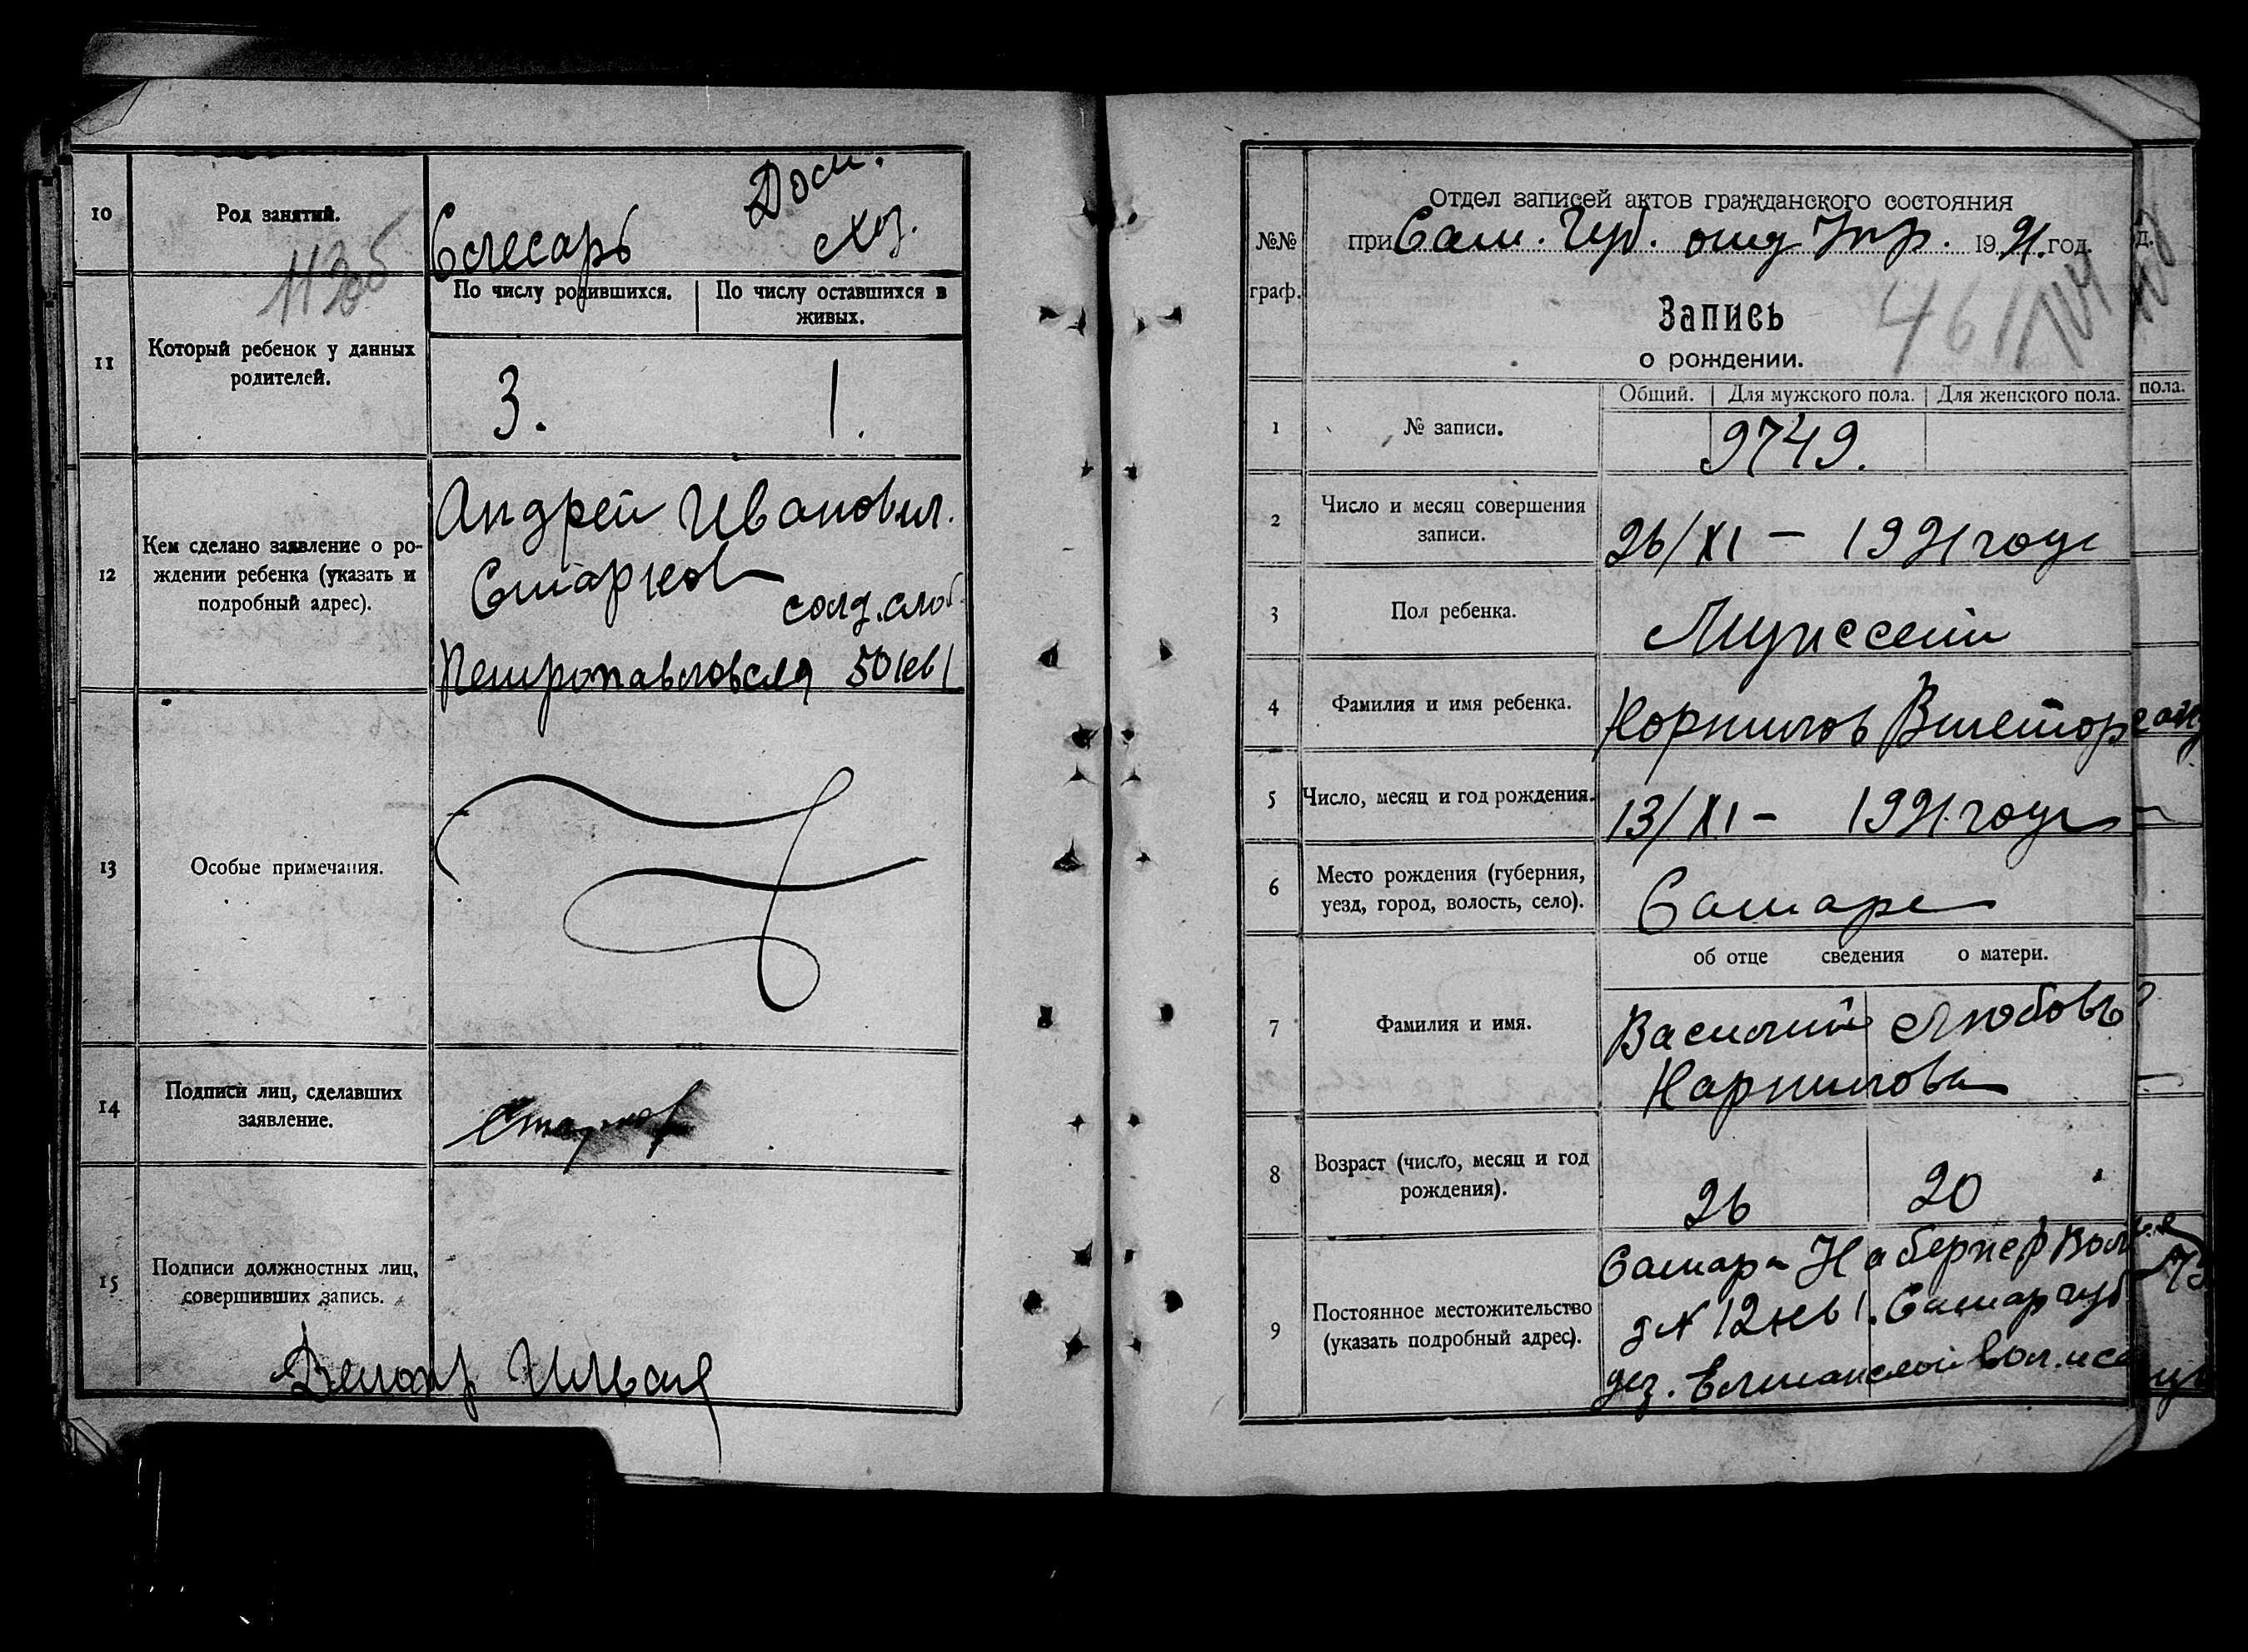 10
Род занятий.
Слесарь
Дом.
хоз.
11
Который ребенок у данных
родителей.
По числу родившихся.
По числу оставшихся в
живых.
3.
1.
12
Кем сделано заявление о ро-
ждении ребенка (указать и
подробный адрес).
Андрей Иванович.
Старков
солд. слоб.
Петропавловская 50 кв 1
13
Особые примечания.
14
Подписи лиц, сделавших
заявление.
Старков
15
Подписи должностных лиц,
совершивших запись.
№№
граф.
Отдел записей актов гражданского состояния
при Сам. Губ. отд Упр. 1921 год.
Запись
о рождении.
Общий.
Для мужского пола.
Для женского пола.
1
№ записи.
9749.
2
Число и месяц совершения
записи.
26/XI – 1921 года
3
Пол ребенка.
Мужской
4
Фамилия и имя ребенка.
Корнилов Виктор
5
Число, месяц и год рождения.
13/XI – 1921 года
6
Место рождения (губерния,
уезд, город, волость, село).
Самара
об отце сведения о матери.
7
Фамилия и имя.
Василий Любовь
Корнилова
8
Возраст (число, месяц и год
рождения).
26
20
9
Постоянное местожительство
(указать подробный адрес).
Самара
д № 12 кв 1. Самар губ
вол.
д.
пола.